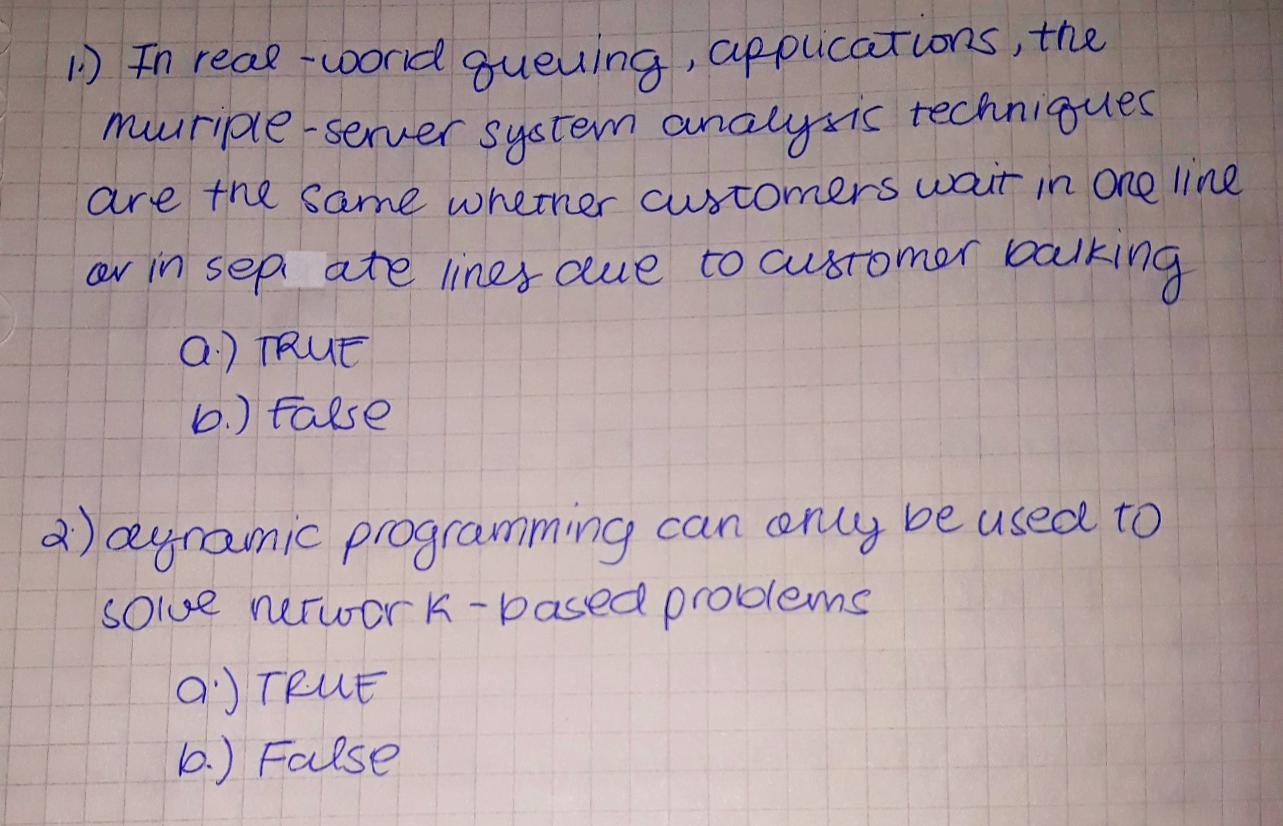 1.) In real-world queuing, applications, the
multiple-server system analysis techniques
are the same whether customers wait in one line
or in sep ate lines due to customer balking
a.) TRUE
b.) False
2.) dynamic programming can only be used to
solve network-based problems
a.) TRUE
b.) False